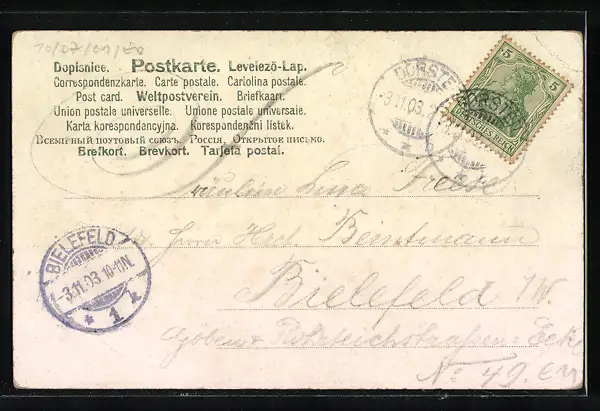 10/07/01/20
Dopisnice. Postkarte. Levelező-Lap.
Correspondenzkarte. Carte postale. Cartolina postale.
Post card. Weltpostverein. Briefkaart.
Union postale universelle. Unione postale universale.
Karta korespondencyjna. Korespondenční listek.
Всемірный почтовый союзъ. Россія. Открытое письмо.
Brefkort. Brevkort. Tarjeta postal.
5 5
DEUTSCHES REICH
DORSTE
3.11.03
Fräulein Luise Freese
Herrn Hch. Berntmann
Bielefeld i/W.
Ecke
No 49.
BIELEFELD
-3.11.03. 10-11N.
* 1 k